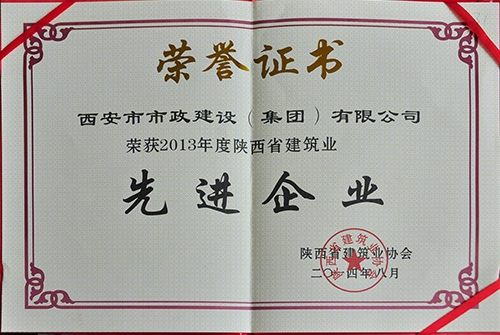 荣誉证书
西安市市政建设（集团）有限公司
荣获2013年度陕西省建筑业
先进企业
陕西省建筑业协会
二〇一四年八月
陕西省建筑业协会